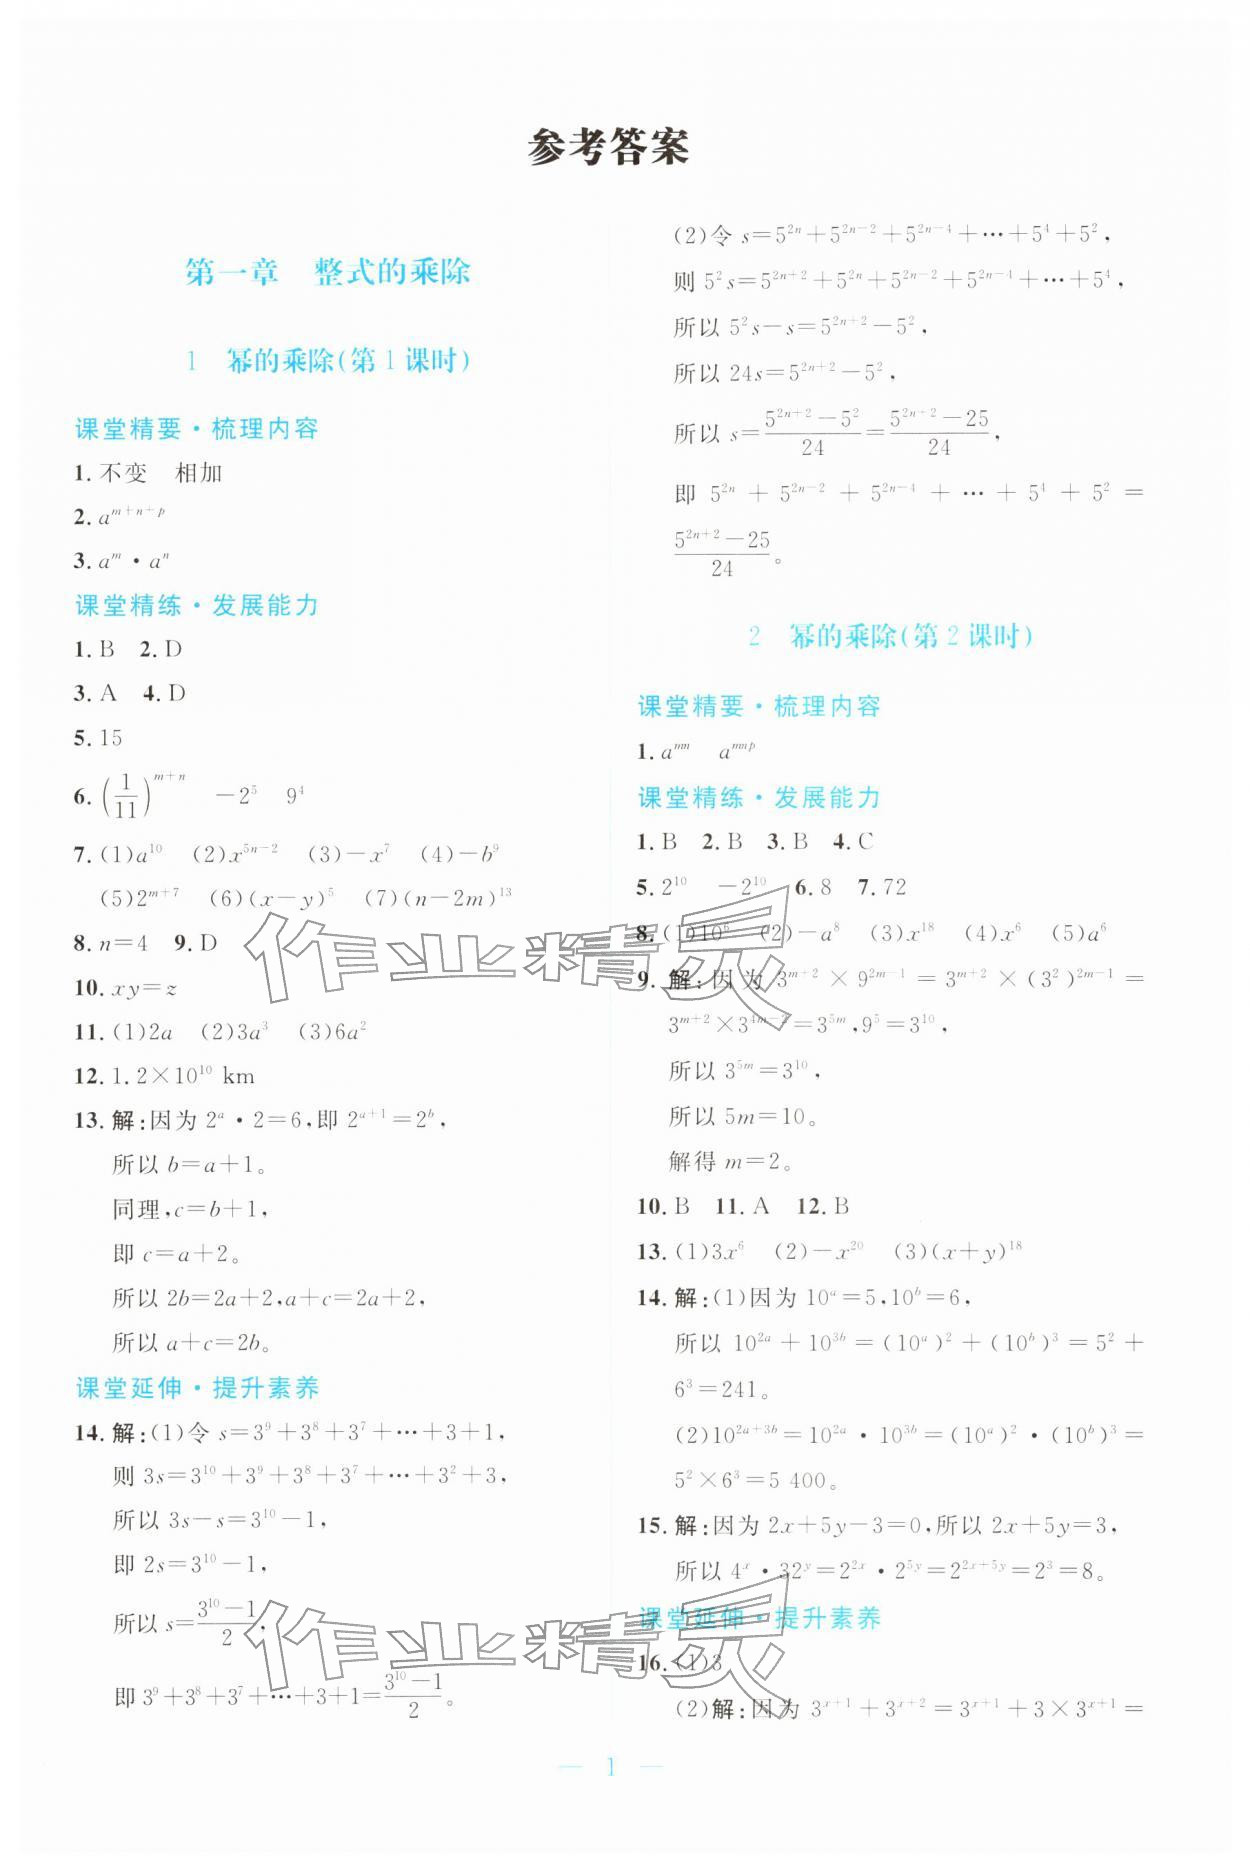 参考答案
第一章　整式的乘除
1　幂的乘除(第1课时)
课堂精要·梳理内容
1. 不变　相加
2. a^{m+n+p}
3. a^m·a^n
课堂精练·发展能力
1. B　2. D
3. A　4. D
5. 15
6. (1/11)^{m+n}　-2^5　9^4
7. (1)a^{10}　(2)x^{5n-2}　(3)-x^7　(4)-b^9
(5)2^{m+7}　(6)(x-y)^5　(7)(n-2m)^{13}
8. n=4　9. D
10. xy=z
11. (1)2a　(2)3a^3　(3)6a^2
12. 1.2×10^{10} km
13. 解:因为 2^a·2=6,即 2^{a+1}=2^b,
所以 b=a+1。
同理,c=b+1,
即 c=a+2。
所以 2b=2a+2,a+c=2a+2,
所以 a+c=2b。
课堂延伸·提升素养
14. 解:(1)令 s=3^9+3^8+3^7+…+3+1,
则 3s=3^{10}+3^9+3^8+3^7+…+3^2+3,
所以 3s-s=3^{10}-1,
即 2s=3^{10}-1,
所以 s=(3^{10}-1)/2,
即 3^9+3^8+3^7+…+3+1=(3^{10}-1)/2。
(2)令 s=5^{2n}+5^{2n-2}+5^{2n-4}+…+5^4+5^2,
则 5^2s=5^{2n+2}+5^{2n}+5^{2n-2}+5^{2n-4}+…+5^4,
所以 5^2s-s=5^{2n+2}-5^2,
所以 24s=5^{2n+2}-5^2,
所以 s=(5^{2n+2}-5^2)/24=(5^{2n+2}-25)/24,
即 5^{2n}+5^{2n-2}+5^{2n-4}+…+5^4+5^2=
(5^{2n+2}-25)/24。
2　幂的乘除(第2课时)
课堂精要·梳理内容
1. a^{mn}　a^{mnp}
课堂精练·发展能力
1. B　2. B　3. B　4. C
5. 2^{10}　-2^{10}　6. 8　7. 72
8. (1)10^6　(2)-a^8　(3)x^{18}　(4)x^6　(5)a^6
9. 解:因为 3^{m+2}×9^{2m-1}=3^{m+2}×(3^2)^{2m-1}=
3^{m+2}×3^{4m-2}=3^{5m},9^5=3^{10},
所以 3^{5m}=3^{10},
所以 5m=10。
解得 m=2。
10. B　11. A　12. B
13. (1)3x^6　(2)-x^{20}　(3)(x+y)^{18}
14. 解:(1)因为 10^a=5,10^b=6,
所以 10^{2a}+10^{3b}=(10^a)^2+(10^b)^3=5^2+
6^3=241。
(2)10^{2a+3b}=10^{2a}·10^{3b}=(10^a)^2·(10^b)^3=
5^2×6^3=5 400。
15. 解:因为 2x+5y-3=0,所以 2x+5y=3,
所以 4^x·32^y=2^{2x}·2^{5y}=2^{2x+5y}=2^3=8。
课堂延伸·提升素养
16. (1)3
(2)解:因为 3^{x+1}+3^{x+2}=3^{x+1}+3×3^{x+1}=
— 1 —
作业精灵
作业精灵